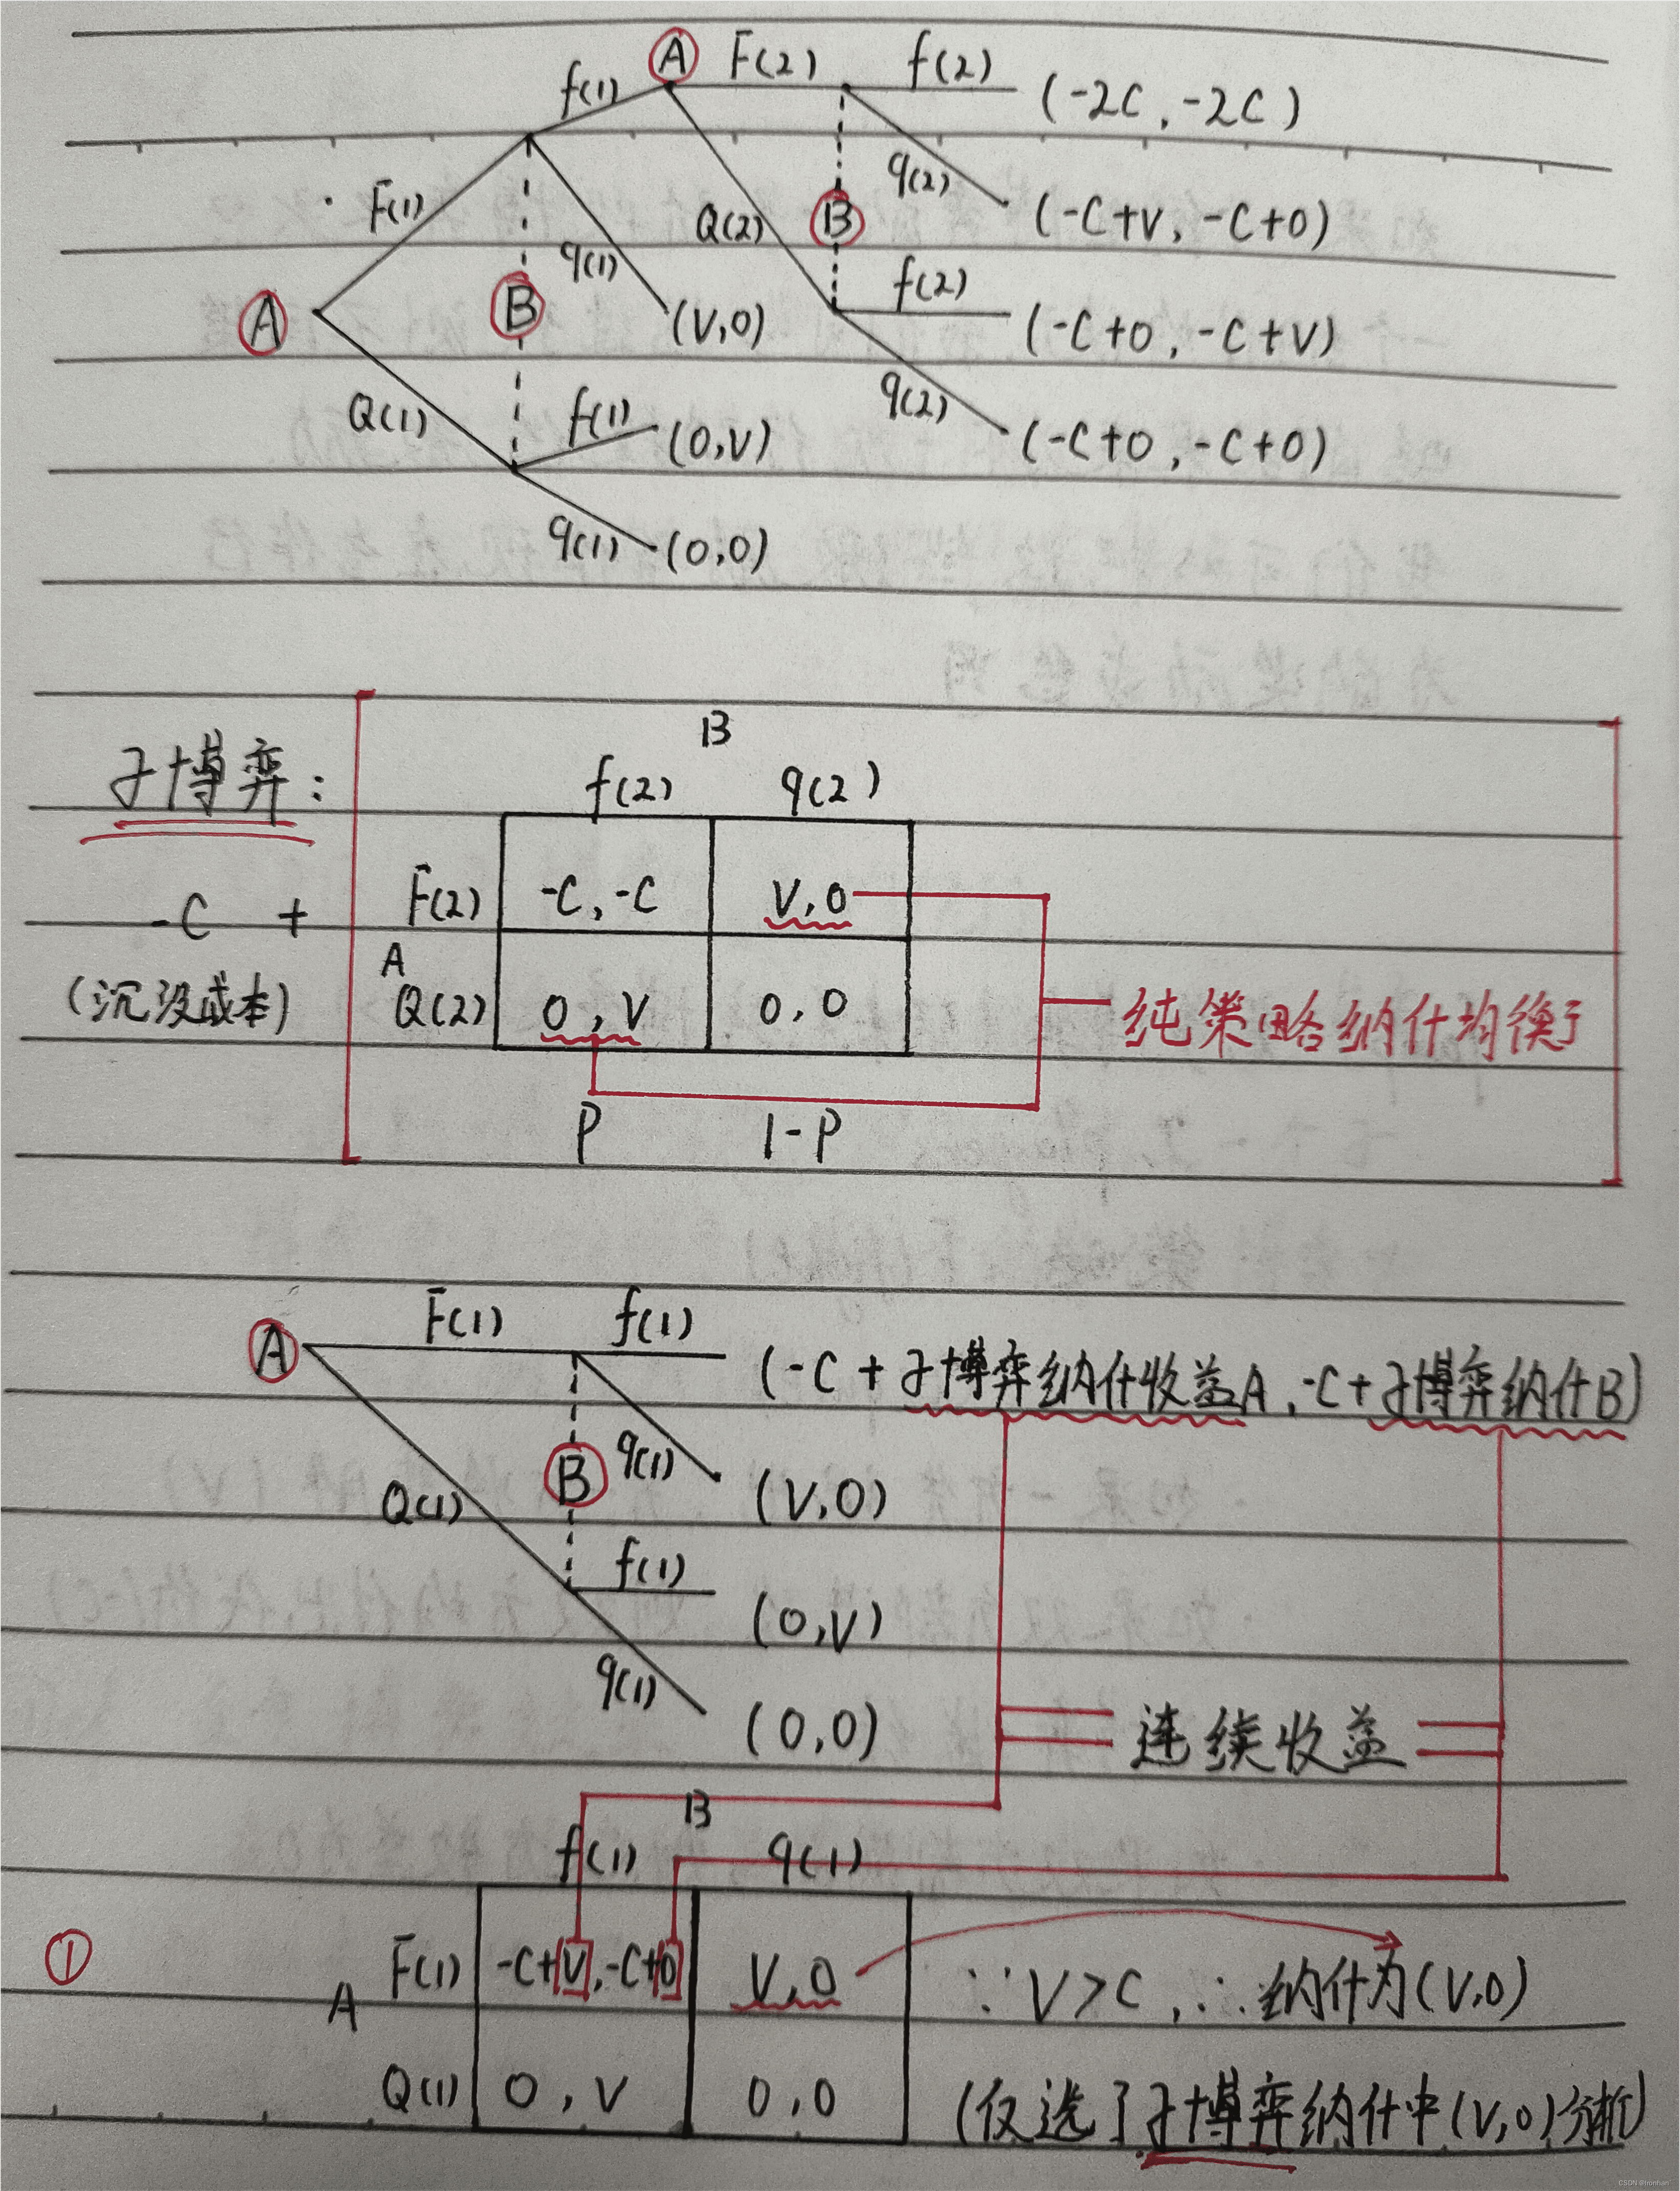 A F(2) f(2) (-2C, -2C)
f(1)
q(2)
F(1) Q(2) B (-C+V, -C+0)
q(1) f(2)
A B (V,0) (-C+0, -C+V)
Q(1) f(1) q(2)
(0,V) (-C+0, -C+0)
q(1) (0,0)
B
子博弈: f(2) q(2)
-C + F(2) -C,-C V,0
A
(沉没成本) Q(2) 0,V 0,0 纯策略纳什均衡
P 1-P
A F(1) f(1) (-C+子博弈纳什收益A, -C+子博弈纳什B)
Q(1) B q(1) (V,0)
f(1) (0,V)
q(1) (0,0) 连续收益
B
f(1) q(1)
① F(1) -C+V,-C+0 V,0 ∵V>C,∴纳什为(V,0)
A
Q(1) 0,V 0,0 (仅选了子博弈纳什中(V,0)分析)